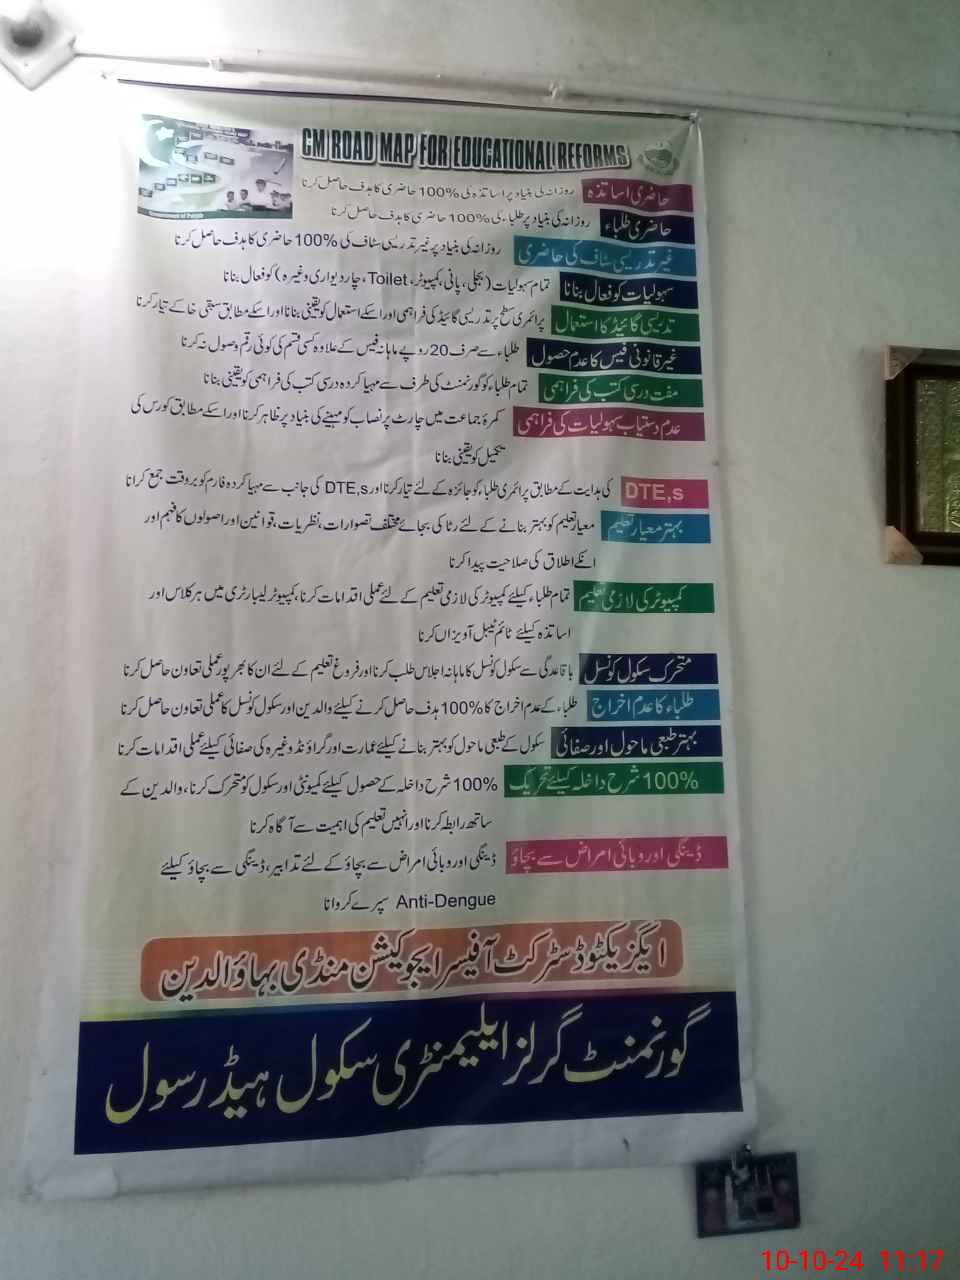 CM ROAD MAP FOR EDUCATIONAL REFORMS
Government of Punjab
حاضری اساتذہ روزانہ کی بنیاد پر اساتذہ کی %100 حاضری کا ہدف حاصل کرنا
حاضری طلباء روزانہ کی بنیاد پر طلباء کی %100 حاضری کا ہدف حاصل کرنا
غیر تدریسی سٹاف کی حاضری روزانہ کی بنیاد پر غیر تدریسی سٹاف کی %100 حاضری کا ہدف حاصل کرنا
سہولیات کو فعال بنانا تمام سہولیات (بجلی، پانی، کمپیوٹر، Toilet، چار دیواری وغیرہ) کو فعال بنانا
تدریسی گائیڈ کا استعمال پرائمری سطح پر تدریسی گائیڈ کی فراہمی اور اسکے استعمال کو یقینی بنانا اور اسکے مطابق سبقی خاکے تیار کرنا
غیر قانونی فیس کا عدم حصول طلباء سے صرف 20 روپے ماہانہ فیس کے علاوہ کسی قسم کی کوئی رقم وصول نہ کرنا
مفت درسی کتب کی فراہمی تمام طلباء کو گورنمنٹ کی طرف سے مہیا کردہ درسی کتب کی فراہمی کو یقینی بنانا
عدم دستیاب سہولیات کی فراہمی کمرۂ جماعت میں چارٹ پر نصاب کو مہینے کی بنیاد پر ظاہر کرنا اور اسکے مطابق کورس کی
تکمیل کو یقینی بنانا
DTE,s کی ہدایت کے مطابق پرائمری طلباء کو جائزہ کے لئے تیار کرنا اور DTE,s کی جانب سے مہیا کردہ فارم کو بروقت جمع کرانا
بہتر معیار تعلیم معیار تعلیم کو بہتر بنانے کے لئے رٹا کی بجائے مختلف تصوارات، نظریات، قوانین اور اصولوں کا فہم اور
انکے اطلاق کی صلاحیت پیدا کرنا
کمپیوٹر کی لازمی تعلیم تمام طلباء کیلئے کمپیوٹر کی لازمی تعلیم کے لئے عملی اقدامات کرنا، کمپیوٹر لیبارٹری میں ہر کلاس اور
اساتذہ کیلئے ٹائم ٹیبل آویزاں کرنا
متحرک سکول کونسل باقاعدگی سے سکول کونسل کا ماہانہ اجلاس طلب کرنا اور فروغ تعلیم کے لئے ان کا بھرپور عملی تعاون حاصل کرنا
طلباء کا عدم اخراج طلباء کے عدم اخراج کا %100 ہدف حاصل کرنے کیلئے والدین اور سکول کونسل کا عملی تعاون حاصل کرنا
بہتر طبعی ماحول اور صفائی سکول کے طبعی ماحول کو بہتر بنانے کیلئے عمارت اور گراؤنڈ وغیرہ کی صفائی کیلئے عملی اقدامات کرنا
%100 شرح داخلہ کیلئے تحریک %100 شرح داخلہ کے حصول کیلئے کمیونٹی اور سکول کو متحرک کرنا، والدین کے
ساتھ رابطہ کرنا اور انہیں تعلیم کی اہمیت سے آگاہ کرنا
ڈینگی اور وبائی امراض سے بچاؤ ڈینگی اور وبائی امراض سے بچاؤ کے لئے تدابیر، ڈینگی سے بچاؤ کیلئے
Anti-Dengue سپرے کروانا
ایگزیکٹو ڈسٹرکٹ آفیسر ایجوکیشن منڈی بہاؤالدین
گورنمنٹ گرلز ایلیمنٹری سکول ہیڈ رسول
10-10-24 11:17